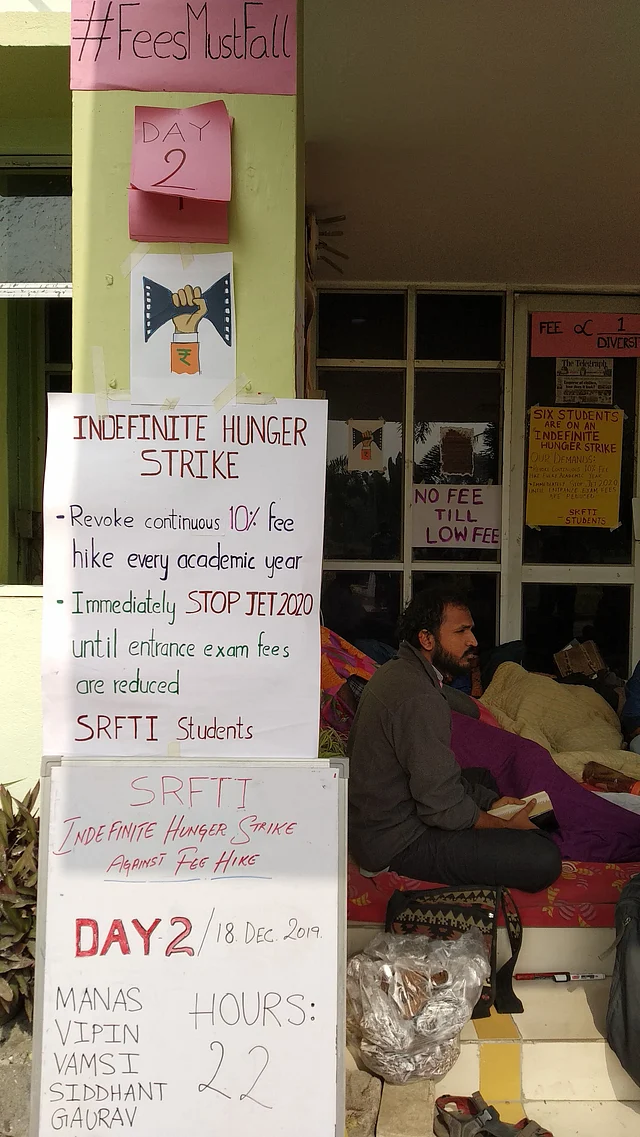 #FeesMustFall
DAY
2
1
₹
INDEFINITE HUNGER
STRIKE
- Revoke continuous 10% fee
hike every academic year
- Immediately STOP JET2020
until entrance exam fees
are reduced
SRFTI Students
SRFTI
INDEFINITE HUNGER STRIKE
AGAINST FEE HIKE
DAY 2 / 18. DEC. 2019.
MANAS
VIPIN
VAMSI
SIDDHANT
GAURAV
HOURS:
22
NO FEE
TILL
LOW FEE
FEE ∝ 1
DIVERSIT
The Telegraph
SIX STUDENTS
ARE ON AN
INDEFINITE
HUNGER STRIKE
OUR DEMANDS:
- SRFTI
STUDENTS